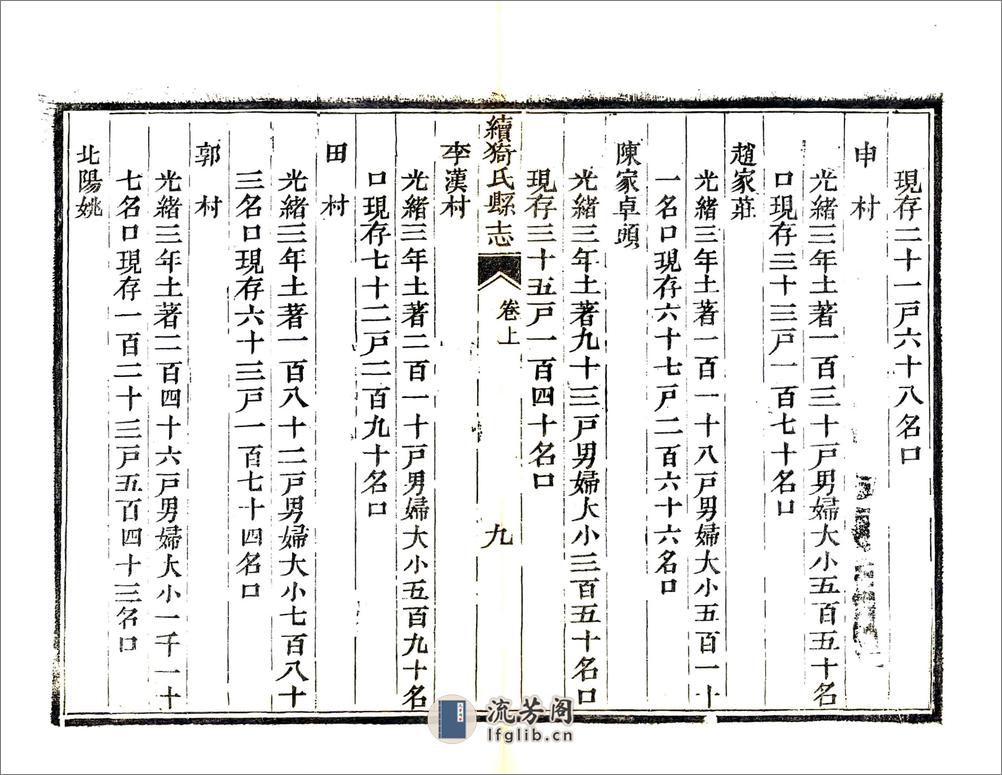 現存二十一戸六十八名口
申村
光緒三年土著一百三十戸男婦大小五百五十名
口現存三十三戸一百七十名口
趙家莊
光緒三年土著一百一十八戸男婦大小五百一十
一名口現存六十七戸二百六十六名口
陳家卓頭
光緒三年土著九十三戸男婦大小三百五十名口
現存三十五戸一百四十名口
續猗氏縣志
卷上
九
李漢村
光緒三年土著二百一十戸男婦大小五百九十名
口現存七十二戸二百九十名口
田村
光緒三年土著一百八十二戸男婦大小七百八十
三名口現存六十三戸一百七十四名口
郭村
光緒三年土著二百四十六戸男婦大小一千一十
七名口現存一百二十三戸五百四十三名口
北陽姚
流芳阁
lfglib.cn